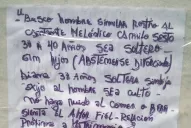 "Busco hombre similar rostro al
cantante melódico Camilo Sesto
30 a 40 años sea soltero
sin hijos (abstenerse divorciado)
38 años soltera sin hijos
exijo al hombre sea culto
no haya huido al correo
sienta el amor fiel - relación